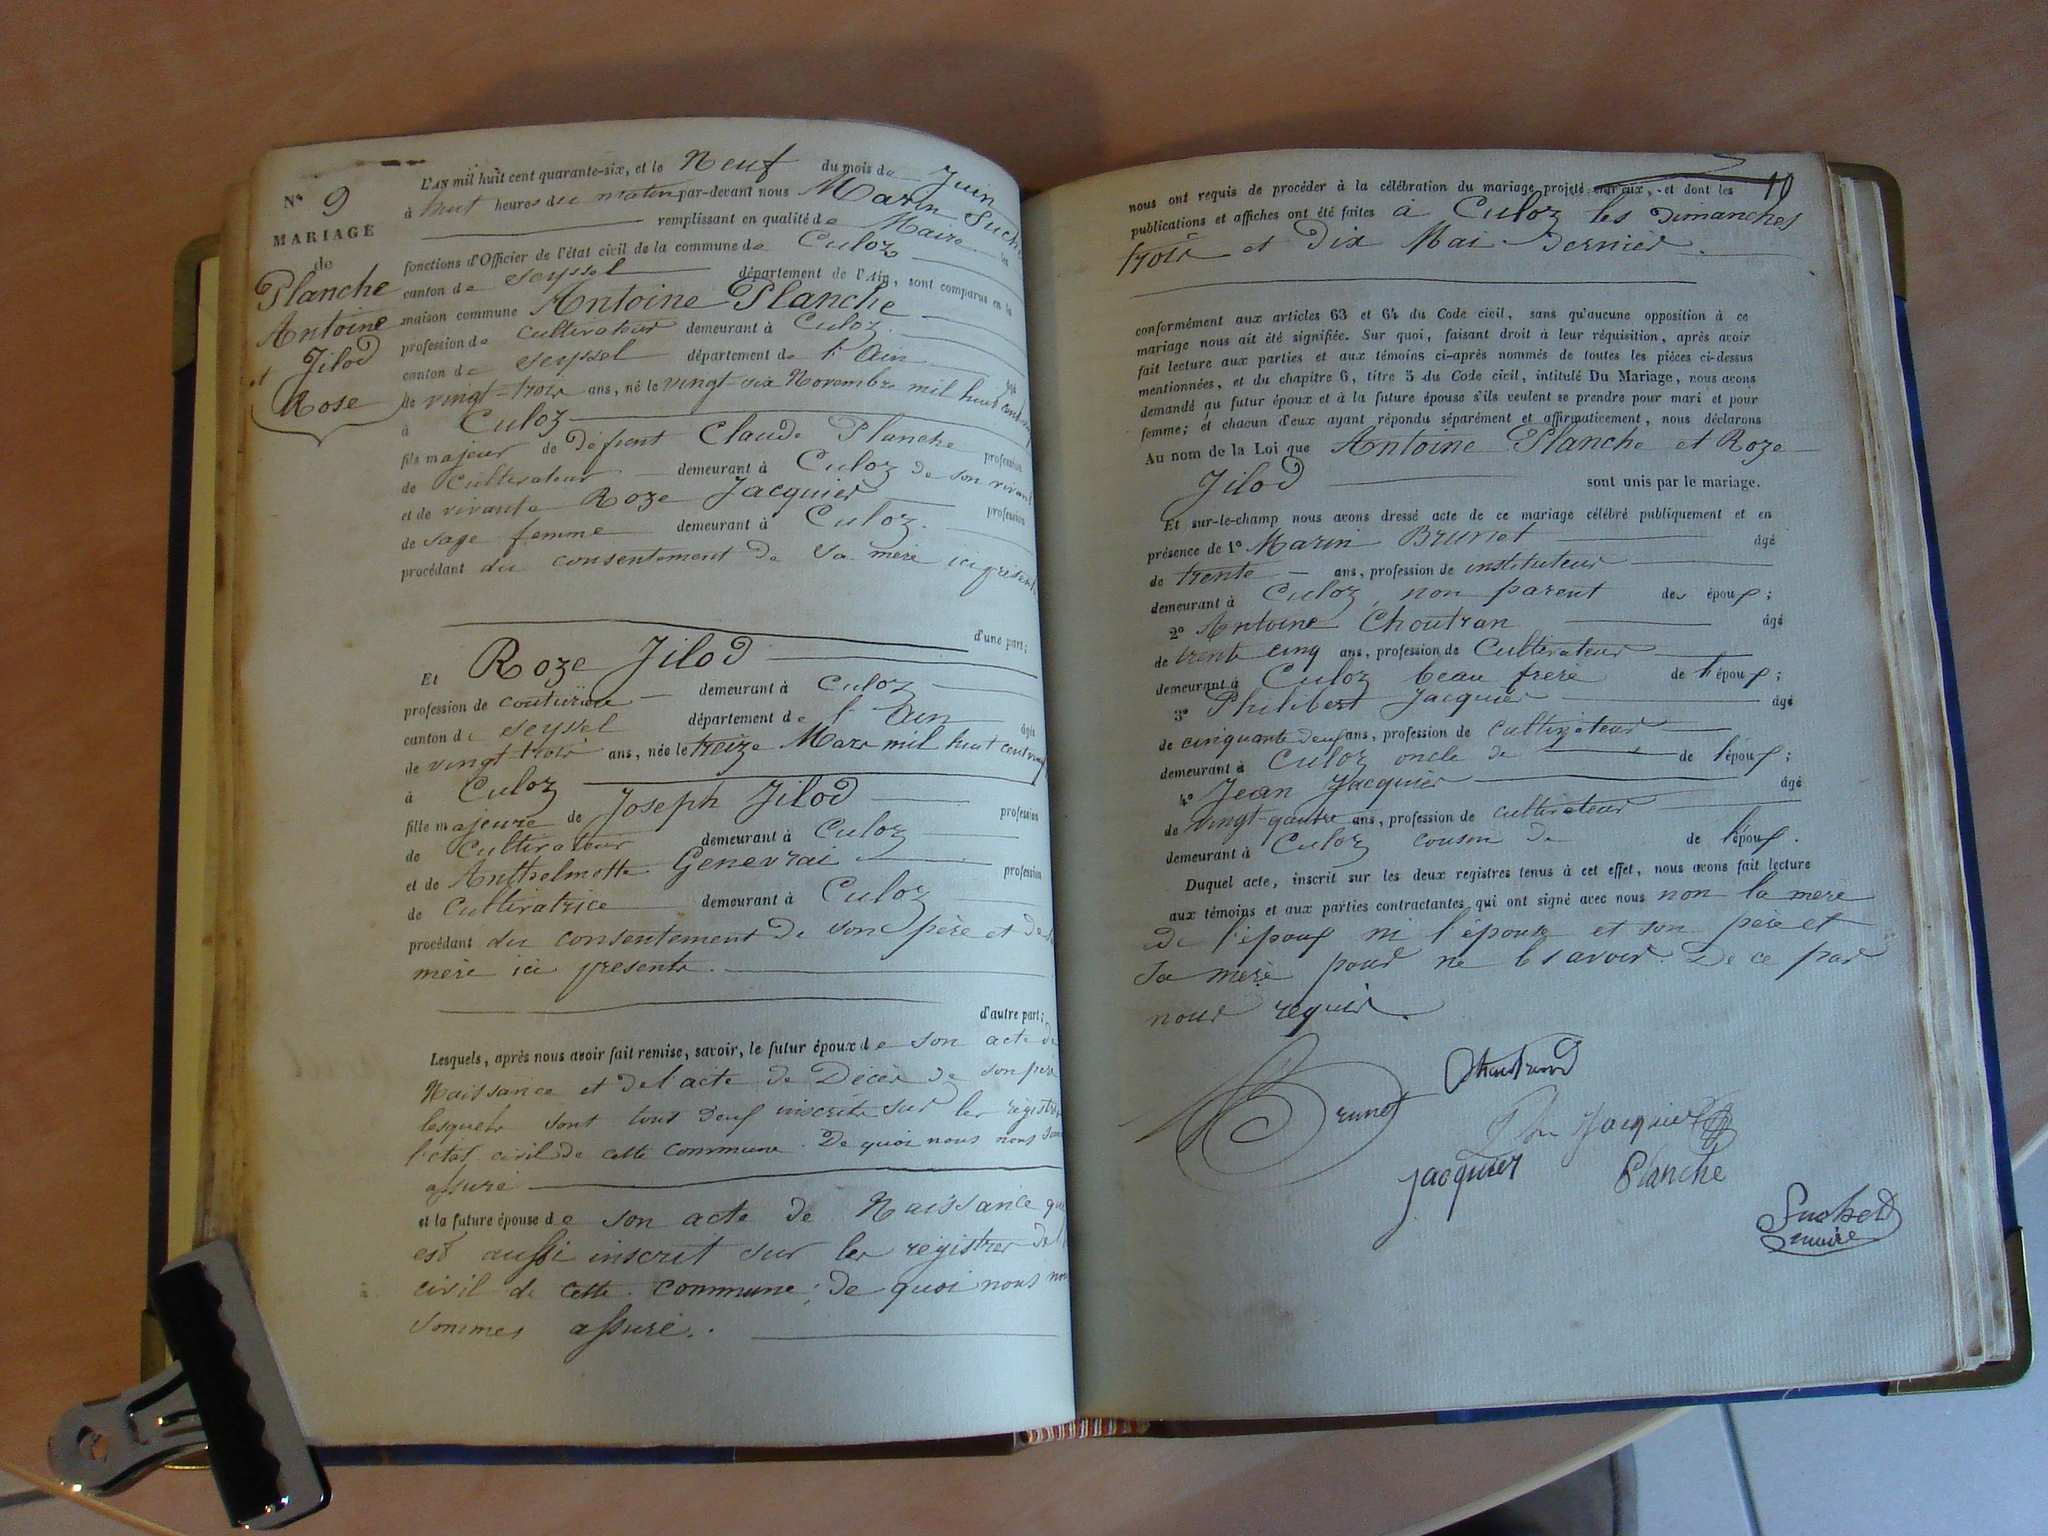 N° 9
MARIAGE
de
Planche
Antoine
et Jilod
Rose
L'AN mil huit cent quarante-six, et le Neuf du mois de Juin
à huit heures du matin par-devant nous Marin Such
remplissant en qualité de Maire les
fonctions d'Officier de l'état civil de la commune de Culoz
canton de Seyssel département de l'Ain, sont comparus en la
maison commune Antoine Planche
profession de cultivateur demeurant à Culoz
canton de Seyssel département de l'Ain âgé
de vingt-trois ans, né le vingt-six Novembre mil huit cent
à Culoz
fils majeur de défunt Claude Planche profession
de Cultivateur demeurant à Culoz de son vivant
et de vivante Roze Jacquier profession
de sage femme demeurant à Culoz
procédant du consentement de sa mère ici présente
d'une part;
Et Roze Jilod
profession de couturière demeurant à Culoz
canton de Seyssel département de l'Ain âgée
de vingt-trois ans, née le treize Mars mil huit cent vingt
à Culoz
fille majeure de Joseph Jilod profession
de Cultivateur demeurant à Culoz
et de Anthelmette Genevrai profession
de Cultivatrice demeurant à Culoz
procédant du consentement de son père et de
mère ici présents.
d'autre part;
Lesquels, après nous avoir fait remise, savoir, le futur époux de son acte de
Naissance et de l'acte de Décès de son père
lesquels sont tous deux inscrits sur les registres
l'état civil de cette commune. De quoi nous nous som
assuré
et la future épouse de son acte de Naissance qui
est aussi inscrit sur les registres de l'
civil de cette commune; de quoi nous nous
sommes assuré.
10
nous ont requis de procéder à la célébration du mariage projeté entr'eux, et dont les
publications et affiches ont été faites à Culoz les dimanches
trois et dix Mai dernier.
conformément aux articles 63 et 64 du Code civil, sans qu'aucune opposition à ce
mariage nous ait été signifiée. Sur quoi, faisant droit à leur réquisition, après avoir
fait lecture aux parties et aux témoins ci-après nommés de toutes les pièces ci-dessus
mentionnées, et du chapitre 6, titre 5 du Code civil, intitulé Du Mariage, nous avons
demandé au futur époux et à la future épouse s'ils veulent se prendre pour mari et pour
femme; et chacun d'eux ayant répondu séparément et affirmativement, nous déclarons
Au nom de la Loi que Antoine Planche et Roze
Jilod sont unis par le mariage.
Et sur-le-champ nous avons dressé acte de ce mariage célébré publiquement et en
présence de 1° Marin Brunet âgé
de trente ans, profession de instituteur
demeurant à Culoz, non parent des époux;
2° Antoine Choutran âgé
de trente cinq ans, profession de Cultivateur
demeurant à Culoz beau frère de l'époux;
3° Philibert Jacquier âgé
de cinquante deux ans, profession de cultivateur
demeurant à Culoz oncle de de l'époux;
4° Jean Jacquier âgé
de vingt-quatre ans, profession de cultivateur
demeurant à Culoz cousin de de l'époux.
Duquel acte, inscrit sur les deux registres tenus à cet effet, nous avons fait lecture
aux témoins et aux parties contractantes qui ont signé avec nous non la mère
de l'époux ni l'épouse et son père et
sa mère pour ne le savoir. De ce par
nous requis.
Brunet
Jacquier
Jacquier
Planche
Suchet
maire